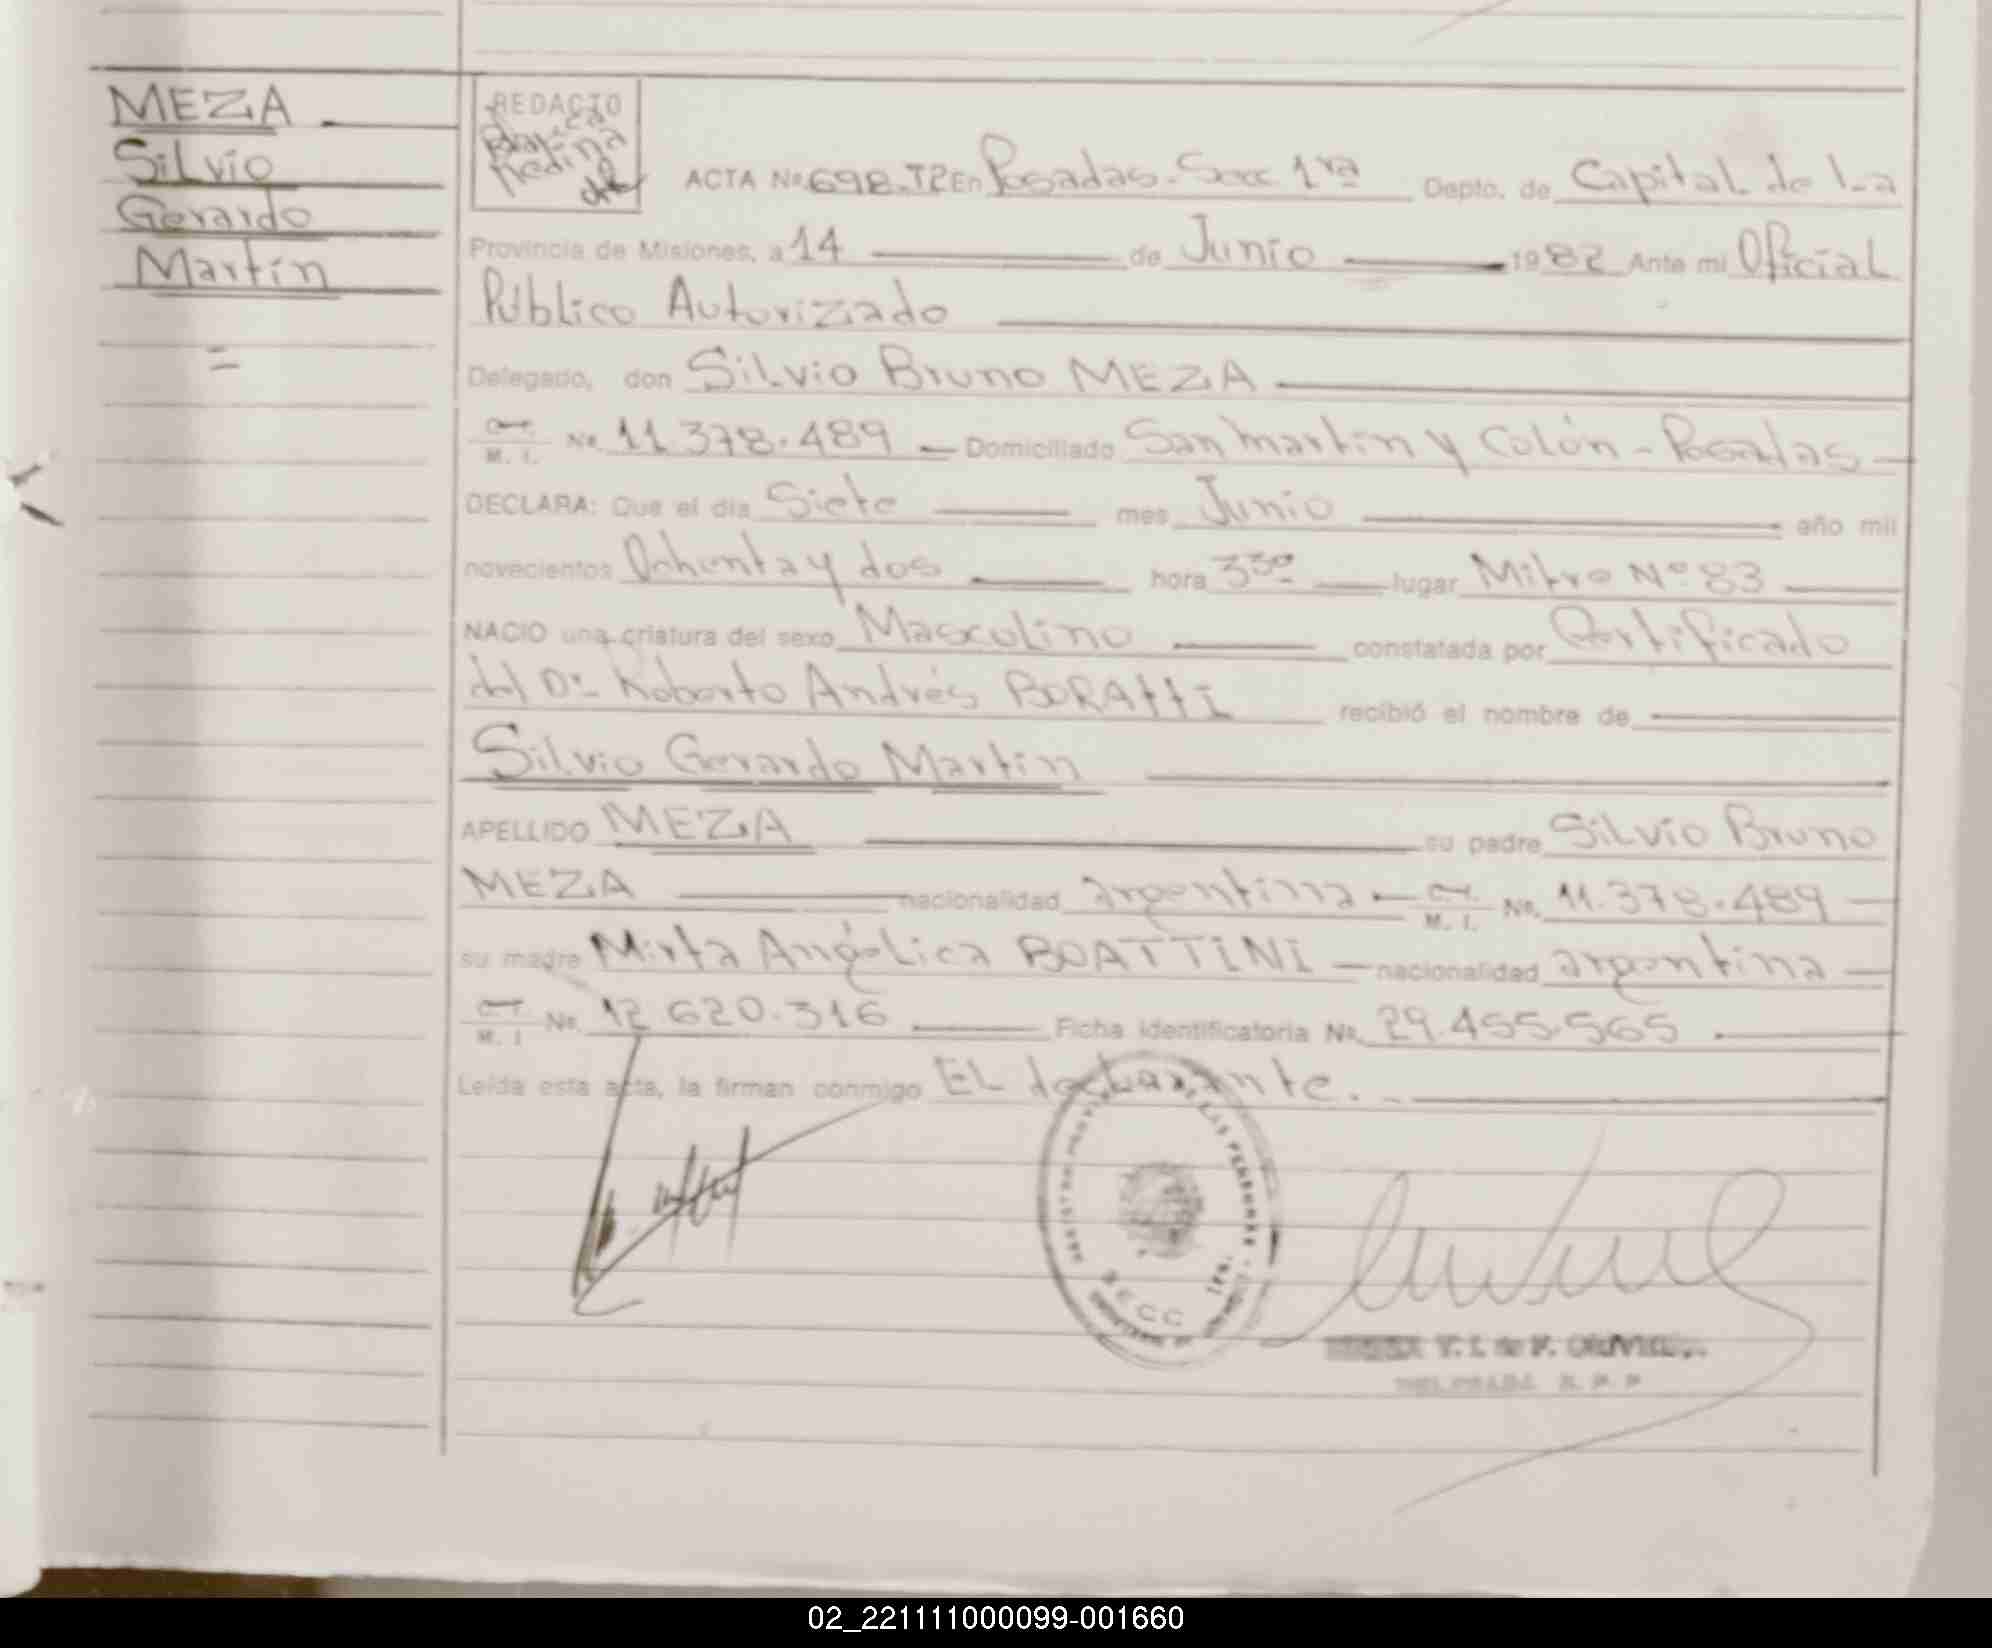 MEZA
Silvio
Gerardo
Martín
=
REDACTO
Medina
ACTA No. 698-T2 En Posadas-Secc 1ra Depto. de Capital de La
Provincia de Misiones, a 14 de Junio 1982 Ante mi Oficial
Público Autorizado
Delegado, don Silvio Bruno MEZA
M. I. No. 11.378.489 Domiciliado San Martín y Colón - Posadas
DECLARA: Que el día Siete mes Junio año mil
novecientos Ochenta y dos hora 3³⁰ lugar Mitre Nº 83
NACIO una criatura del sexo Masculino constatada por Certificado
del Dr. Roberto Andrés BORATTI recibió el nombre de
Silvio Gerardo Martín
APELLIDO MEZA su padre Silvio Bruno
MEZA nacionalidad argentina M. I. No. 11.378.489
su madre Mirta Angélica BOATTINI nacionalidad argentina
M. I. No. 12.620.316 Ficha identificatoria No. 29.455.565
Leída esta acta, la firman conmigo EL declarante.
SECC 1ra.
02_221111000099-001660